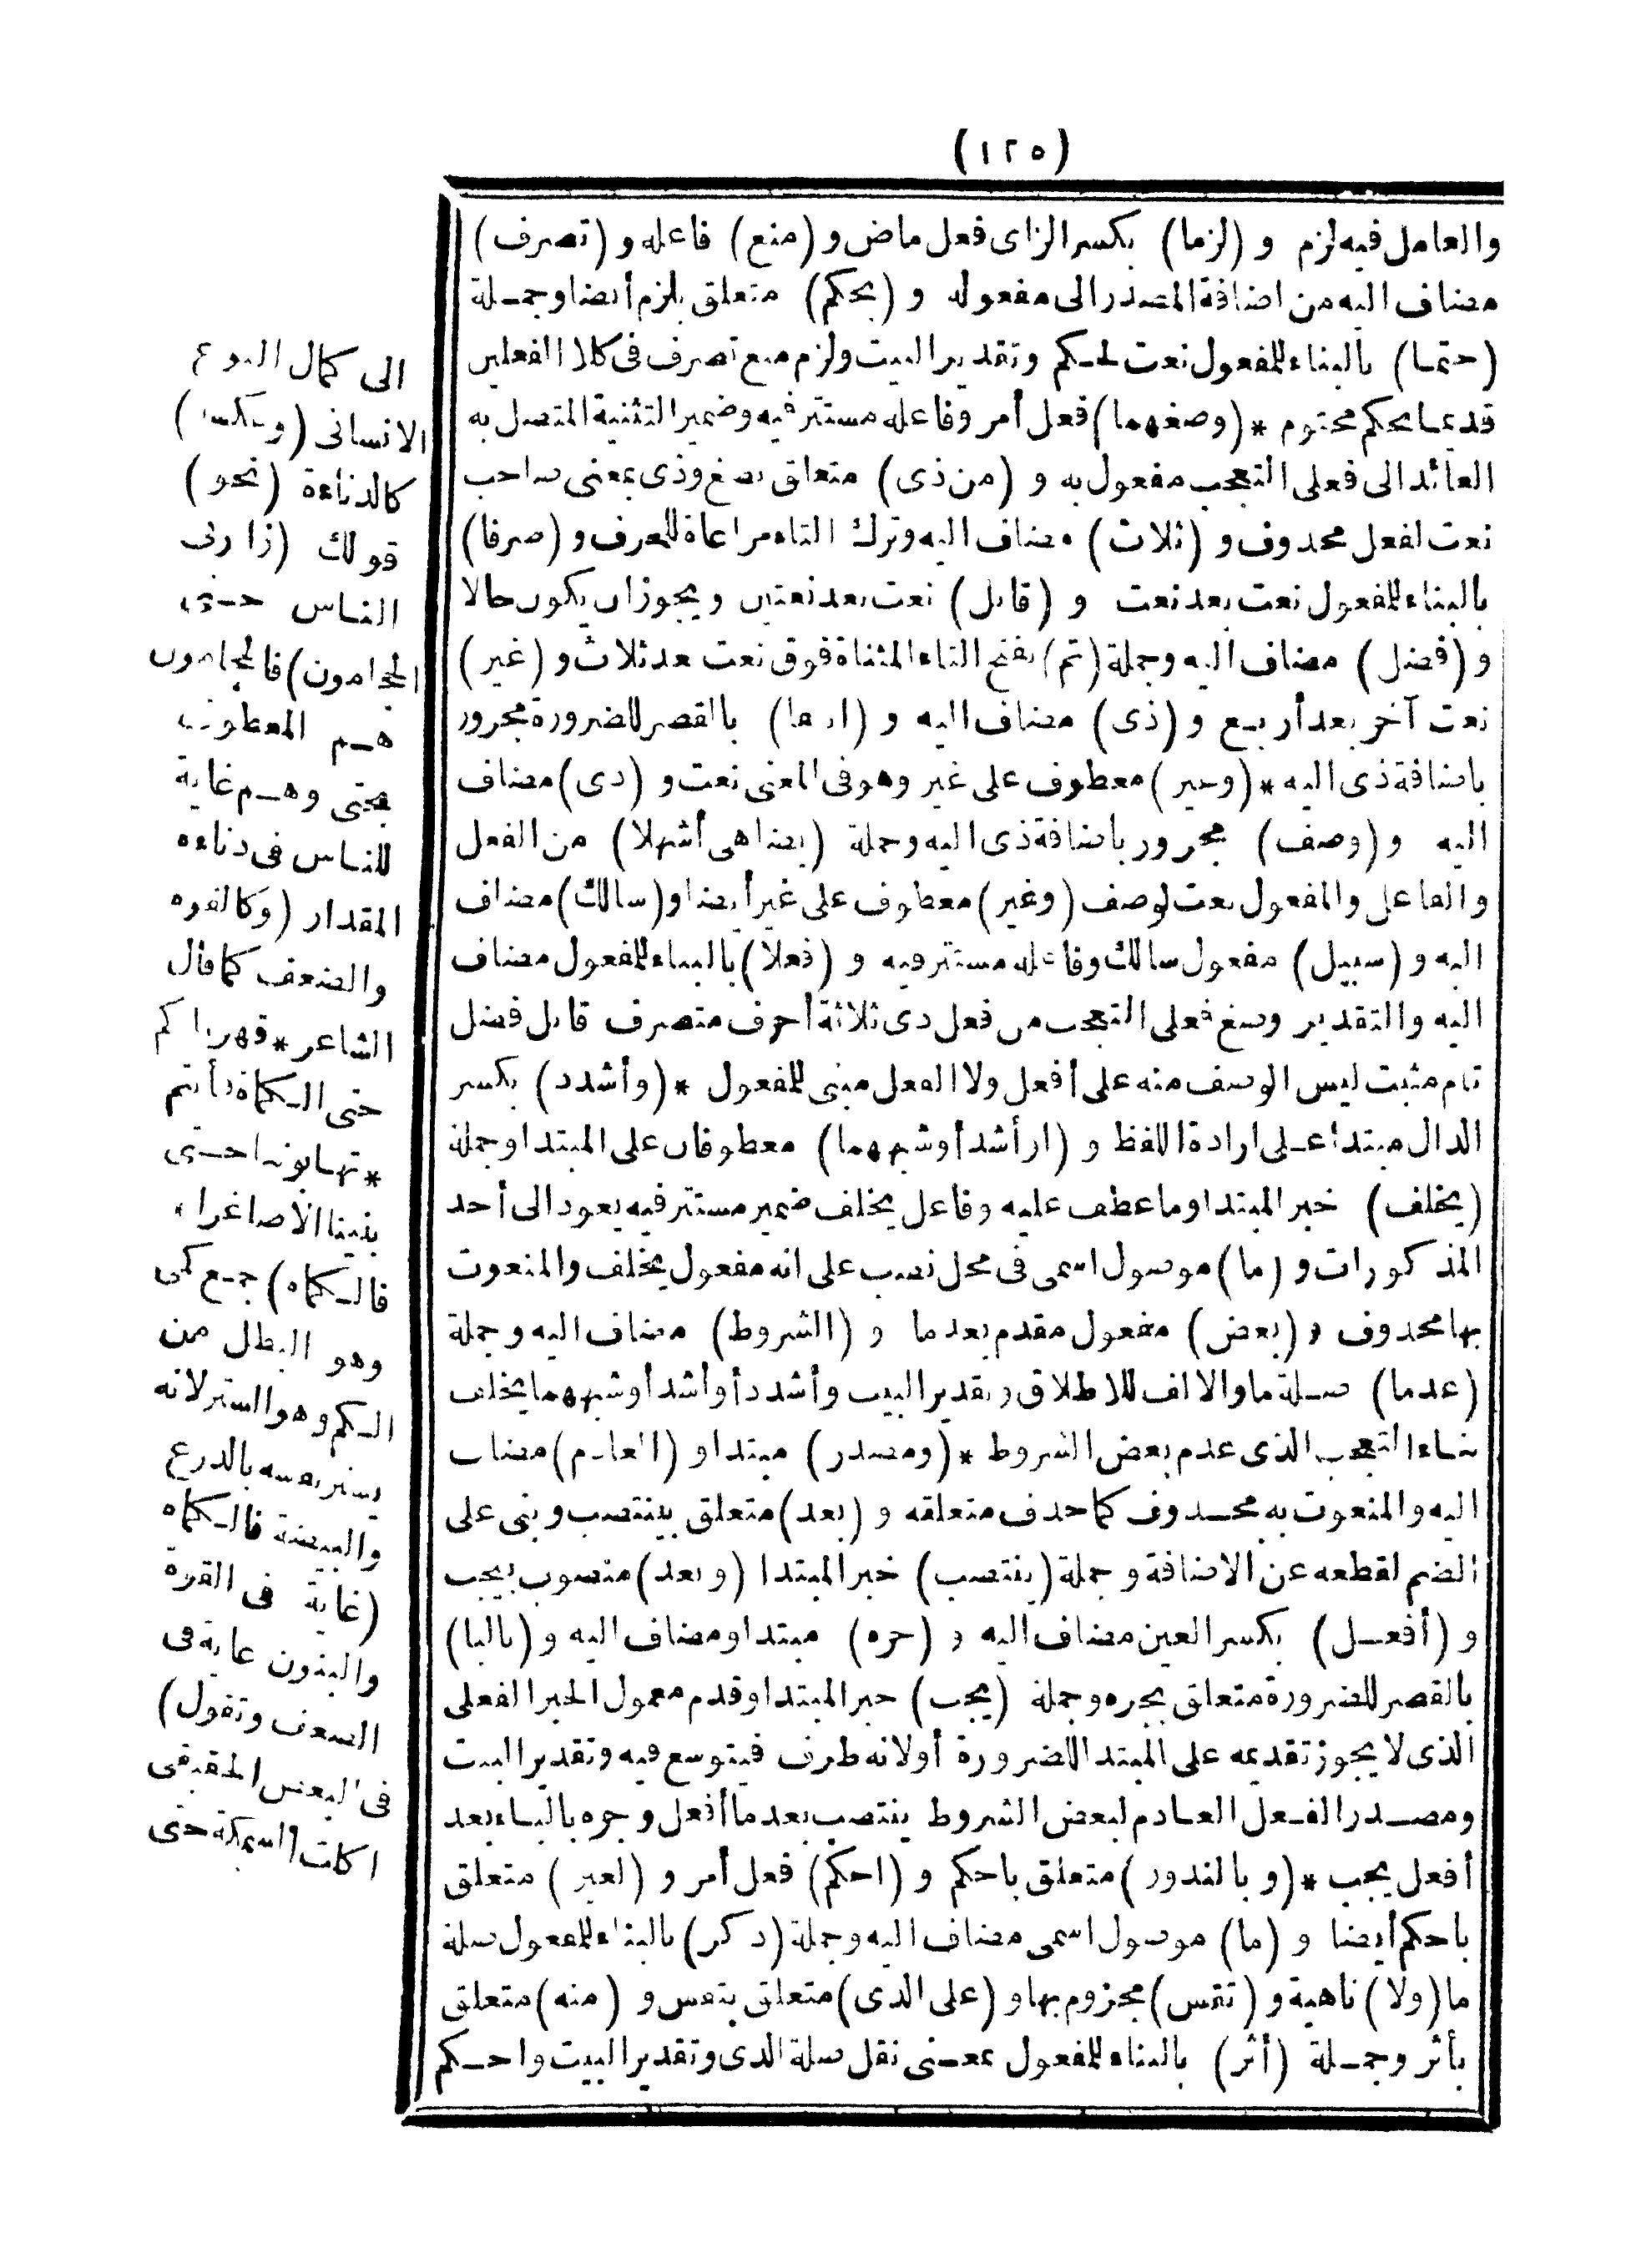 (١٢٥)
والعامل فيه لزم و (لزما) بكسر الزاى فعل ماض و (منع) فاعله و (تصرف)
مضاف اليه من اضافة المصدر الى مفعوله و (بحكم) متعلق بلزم أيضا وجملة
(حتما) بالبناء للمفعول نعت لحكم وتقدير البيت ولزم منع تصرف فى كلا الفعلين
قديما بحكم محتوم * (وصغهما) فعل أمر وفاعله مستتر فيه وضمير التثنية المتصل به
العائد الى فعلى التعجب مفعول به و (من ذى) متعلق بصغ وذى بمعنى صاحب
نعت لفعل محذوف و (ثلاث) مضاف اليه وترك التاء مراعاة للحرف و (صرفا)
بالبناء للمفعول نعت بعد نعت و (قابل) نعت بعد نعتين ويجوز ان يكون حالا
و (فضل) مضاف اليه وجملة (تم) بفتح التاء المثناة فوق نعت بعد ثلاث و (غير)
نعت آخر بعد أربع و (ذى) مضاف اليه و (انتفا) بالقصر للضرورة مجرور
باضافة ذى اليه * (وغير) معطوف على غير وهو فى المعنى نعت و (ذى) مضاف
اليه و (وصف) مجرور باضافة ذى اليه وجملة (يضاهى أشهلا) من الفعل
والفاعل والمفعول نعت لوصف (وغير) معطوف على غير أيضا و (سالك) مضاف
اليه و (سبيل) مفعول سالك وفاعله مستتر فيه و (فعلا) بالبناء للمفعول مضاف
اليه والتقدير وصغ فعلى التعجب من فعل ذى ثلاثة أحرف متصرف قابل فضل
تام مثبت ليس الوصف منه على أفعل ولا الفعل مبنى للمفعول * (وأشدد) بكسر
الدال مبتدأ على ارادة اللفظ و (او أشد أو شبههما) معطوفان على المبتدا وجملة
(يخلف) خبر المبتدا وما عطف عليه وفاعل يخلف ضمير مستتر فيه يعود الى أحد
المذكورات و (ما) موصول اسمى فى محل نصب على انه مفعول يخلف والمنعوت
بها محذوف و (بعض) مفعول مقدم بعدما و (الشروط) مضاف اليه وجملة
(عدما) صلة ما والالف للاطلاق وتقدير البيت وأشدد أو أشد أو شبههما يخلف
بناء التعجب الذى عدم بعض الشروط * (ومصدر) مبتدا و (العادم) مضاف
اليه والمنعوت به محذوف كما حذف متعلقه و (بعد) متعلق بينتصب وبنى على
الضم لقطعه عن الاضافة وجملة (ينتصب) خبر المبتدا (وبعد) منصوب بيجب
و (أفعل) بكسر العين مضاف اليه و (جره) مبتدا ومضاف اليه و (بالبا)
بالقصر للضرورة متعلق بجره وجملة (يجب) خبر المبتدا وقدم معمول الخبر الفعلى
الذى لا يجوز تقديمه على المبتدا للضرورة أو لانه ظرف فيتوسع فيه وتقدير البيت
ومصدر الفعل العادم لبعض الشروط ينتصب بعد ما أفعل وجره بالباء بعد
أفعل يجب * (وبالندور) متعلق باحكم و (احكم) فعل أمر و (لغير) متعلق
باحكم أيضا و (ما) موصول اسمى مضاف اليه وجملة (ذكر) بالبناء للمفعول صلة
ما (ولا) ناهية و (تقس) مجزوم بها و (على الذى) متعلق بتقس و (منه) متعلق
بأثر وجملة (أثر) بالبناء للمفعول بمعنى نقل صلة الذى وتقدير البيت واحكم
الى كمال النوع
الانسانى (وبعكسه)
كالدناءة (نحو)
قولك (زارنى
الناس حتى
الحجامون) فالحجامون
هم المعطوف
بحتى وهم غاية
للناس فى دناءة
المقدار (وكالقوة
والضعف كما قال
الشاعر * قهرناكم
حتى الكماة فأنتم
* تهابوننا حتى
بنينا الاصاغرا *
فالكماة) جمع كمى
وهو البطل من
الكم وهو الستر لانه
يستر نفسه بالدرع
والبيضة فالكماة
(غاية فى القوة
والبنون غاية فى
الضعف وتقول)
فى البعض الحقيقى
اكلت السمكة حتى